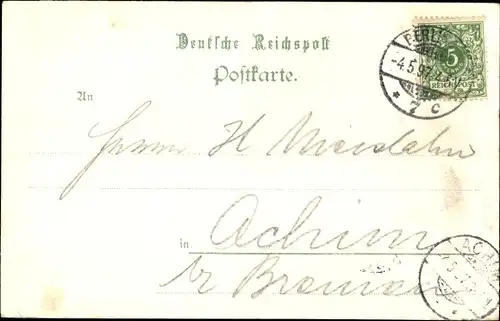 Deutsche Reichspost
Postkarte.
BERLIN
-4.5.97.
* 7 c
5
REICHSPOST
An
Herrn H
Achim
in
b/ Bremen
ACHIM